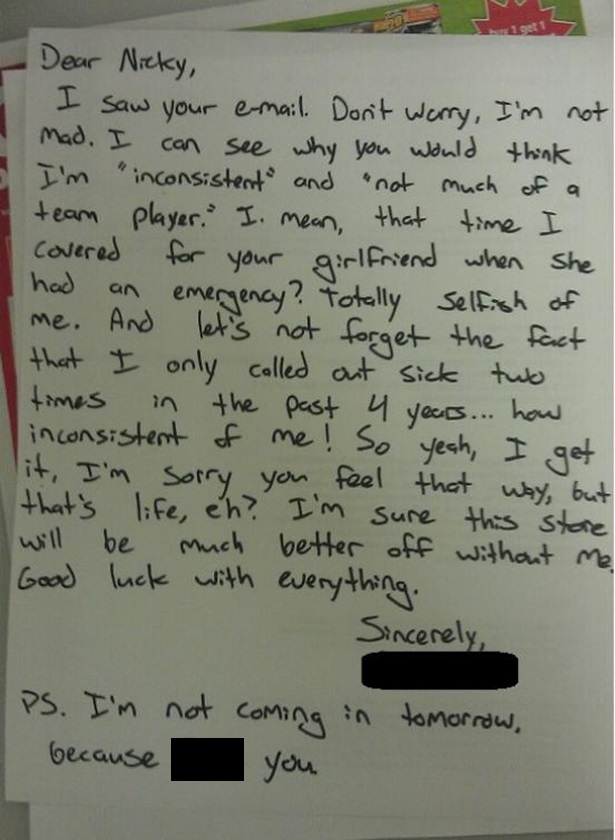 buy 1 get 1
Dear Nicky,
I saw your e-mail. Don't worry, I'm not
mad. I can see why you would think
I'm "inconsistent" and "not much of a
team player." I. mean, that time I
covered for your girlfriend when she
had an emergency? Totally selfish of
me. And let's not forget the fact
that I only called out sick two
times in the past 4 years... how
inconsistent of me! So yeah, I get
it, I'm sorry you feel that way, but
that's life, eh? I'm sure this store
will be much better off without me.
Good luck with everything.
Sincerely,
PS. I'm not coming in tomorrow,
because you.